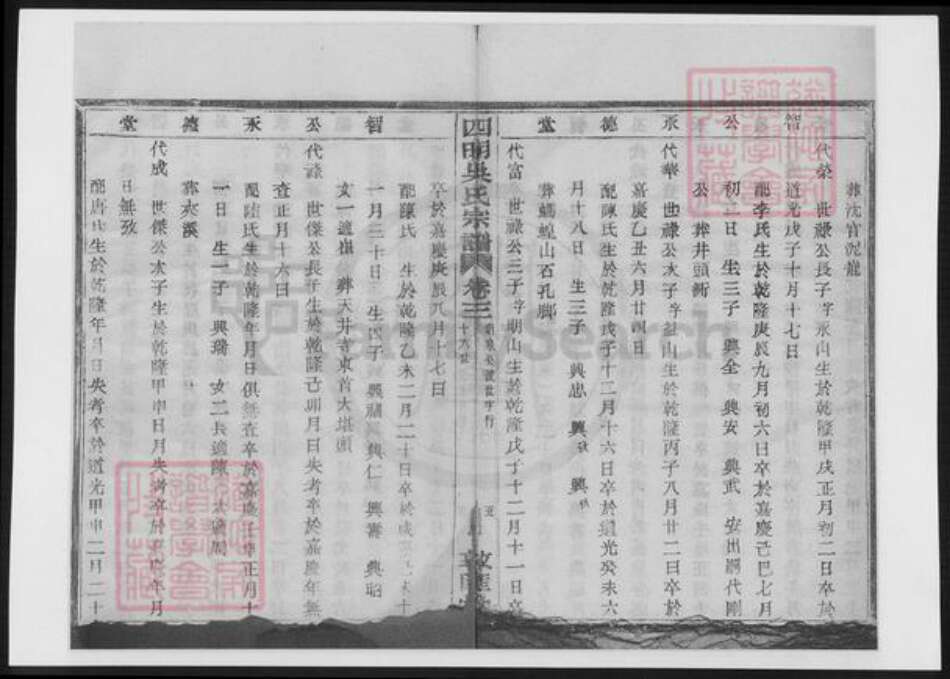 葬沈官泥龍
智 代榮 世祿公長子字永山生於乾隆甲戌正月初二日卒於
道光戊子十月十七日
配李氏生於乾隆庚辰九月初六日卒於嘉慶己巳七月
公 初三日 生三子 興全 興安 興武 安出嗣代剛
公 葬井頭衕
承 代華 世祿公次子字組山生於乾隆丙子八月廿二日卒於
嘉慶乙丑六月廿四日
德 配陳氏生於乾隆戊子十二月十六日卒於道光癸未六
月十八日 生三子 興忠 興 興
堂 代富 世祿公三子字明山生於乾隆戊子十二月十一日卒
葬螞蝗山百孔廊
四明吳氏宗譜 卷三 十六世 五 敦
卒於嘉慶庚辰八月十七日
配陳氏 生於乾隆乙未二月二十日卒於咸 十
智 一月三十日 生四子 興 興仁 興壽 興昭
女一適崔 葬天井寺東首大堪頭
公 代 世傑公長子生於乾隆己卯月日失考卒於嘉慶年無
查正月十六日
承 配陸氏生於乾隆年月日俱無查卒於嘉慶壬 年正月十
一日 生一子 興瑞 女二長適陳 次適周
德 葬夾溪
堂 代成 世傑公次子生於乾隆甲申日月失考卒於嘉慶年月
日無攷
配唐氏生於乾隆年月日失考卒於道光甲申二月二十